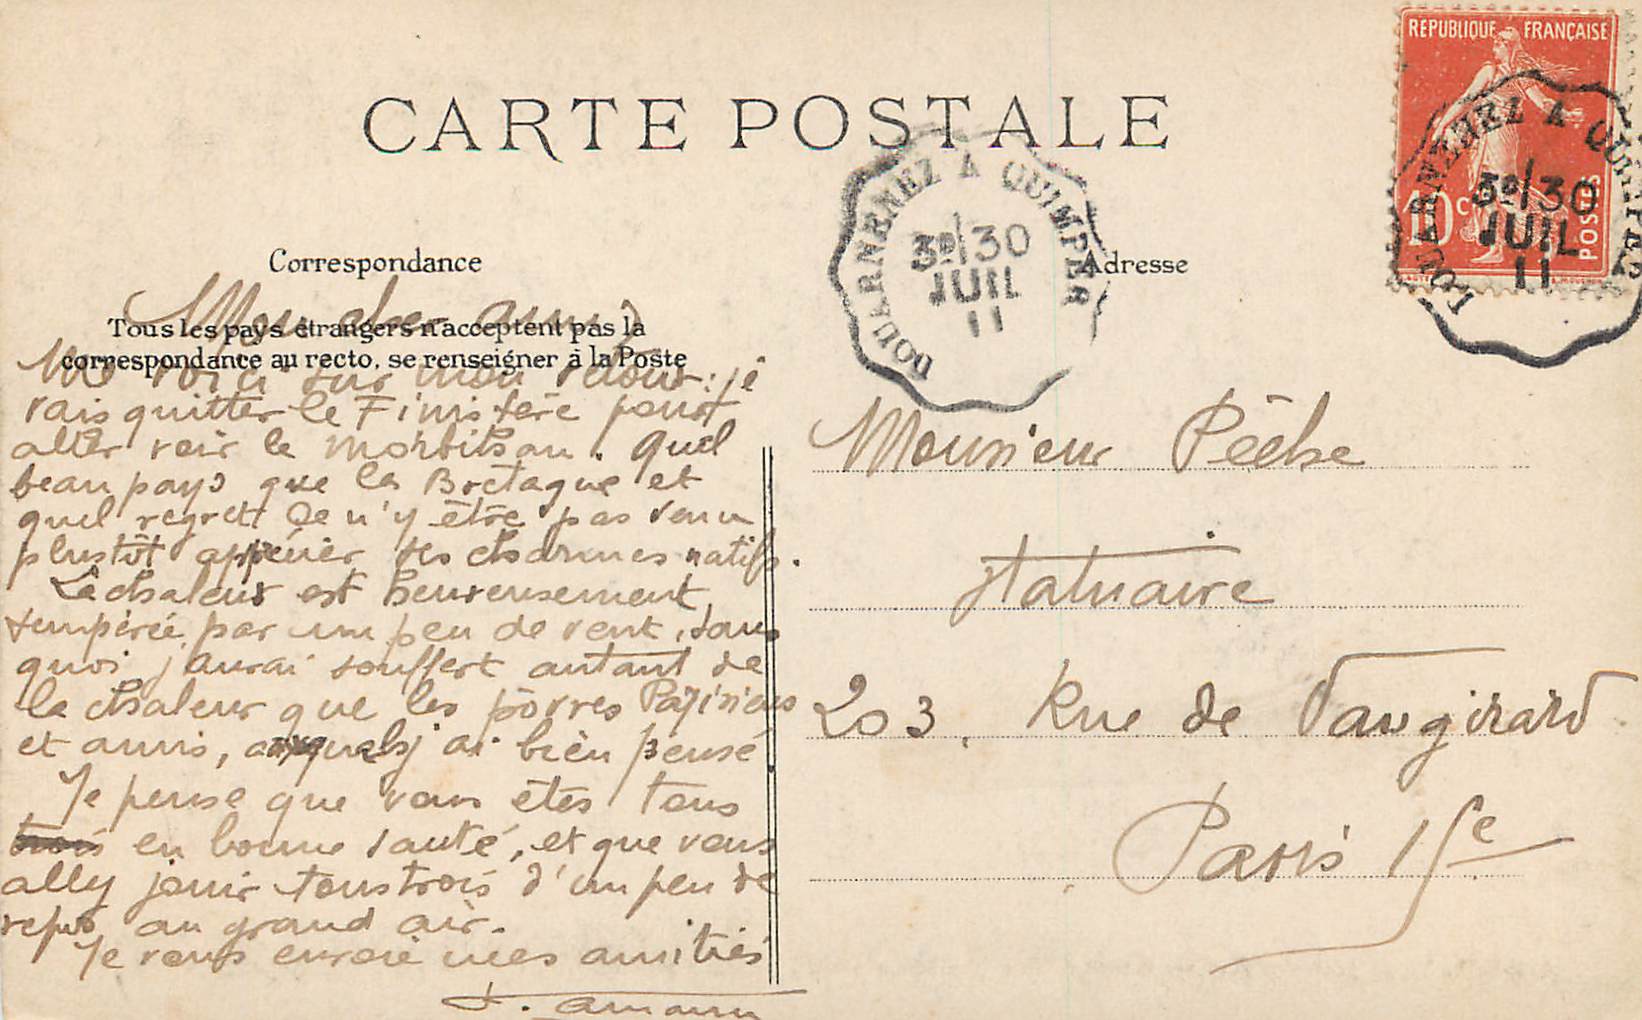 CARTE POSTALE
REPUBLIQUE FRANÇAISE
10 c
POSTES
DOUARNENEZ A QUIMPER
3º/30
JUIL
11
DOUARNENEZ A QUIMPER
3º/30
JUIL
11
Correspondance
Adresse
Tous les pays étrangers n'acceptent pas la
correspondance au recto, se renseigner à la Poste
Mon cher ami
Me voici sur mon retour : je
vais quitter le Finistère pour
aller voir le Morbihan. Quel
beau pays que la Bretagne et
quel regret de n'y être pas venu
plustôt apprécier ses charmes natifs.
La chaleur est heureusement
tempérée par un peu de vent, sans
quoi j'aurai souffert autant de
la chaleur que les pôvres Parisiens
et amis, auxquels j'ai bien pensé.
Je pense que vous êtes tous
trois en bonne santé, et que vous
allez jouir tous trois d'un peu de
repos au grand air.
Je vous envoie mes amitiés
Monsieur Pêche
Statuaire
203, Rue de Vaugirard
Paris 15e